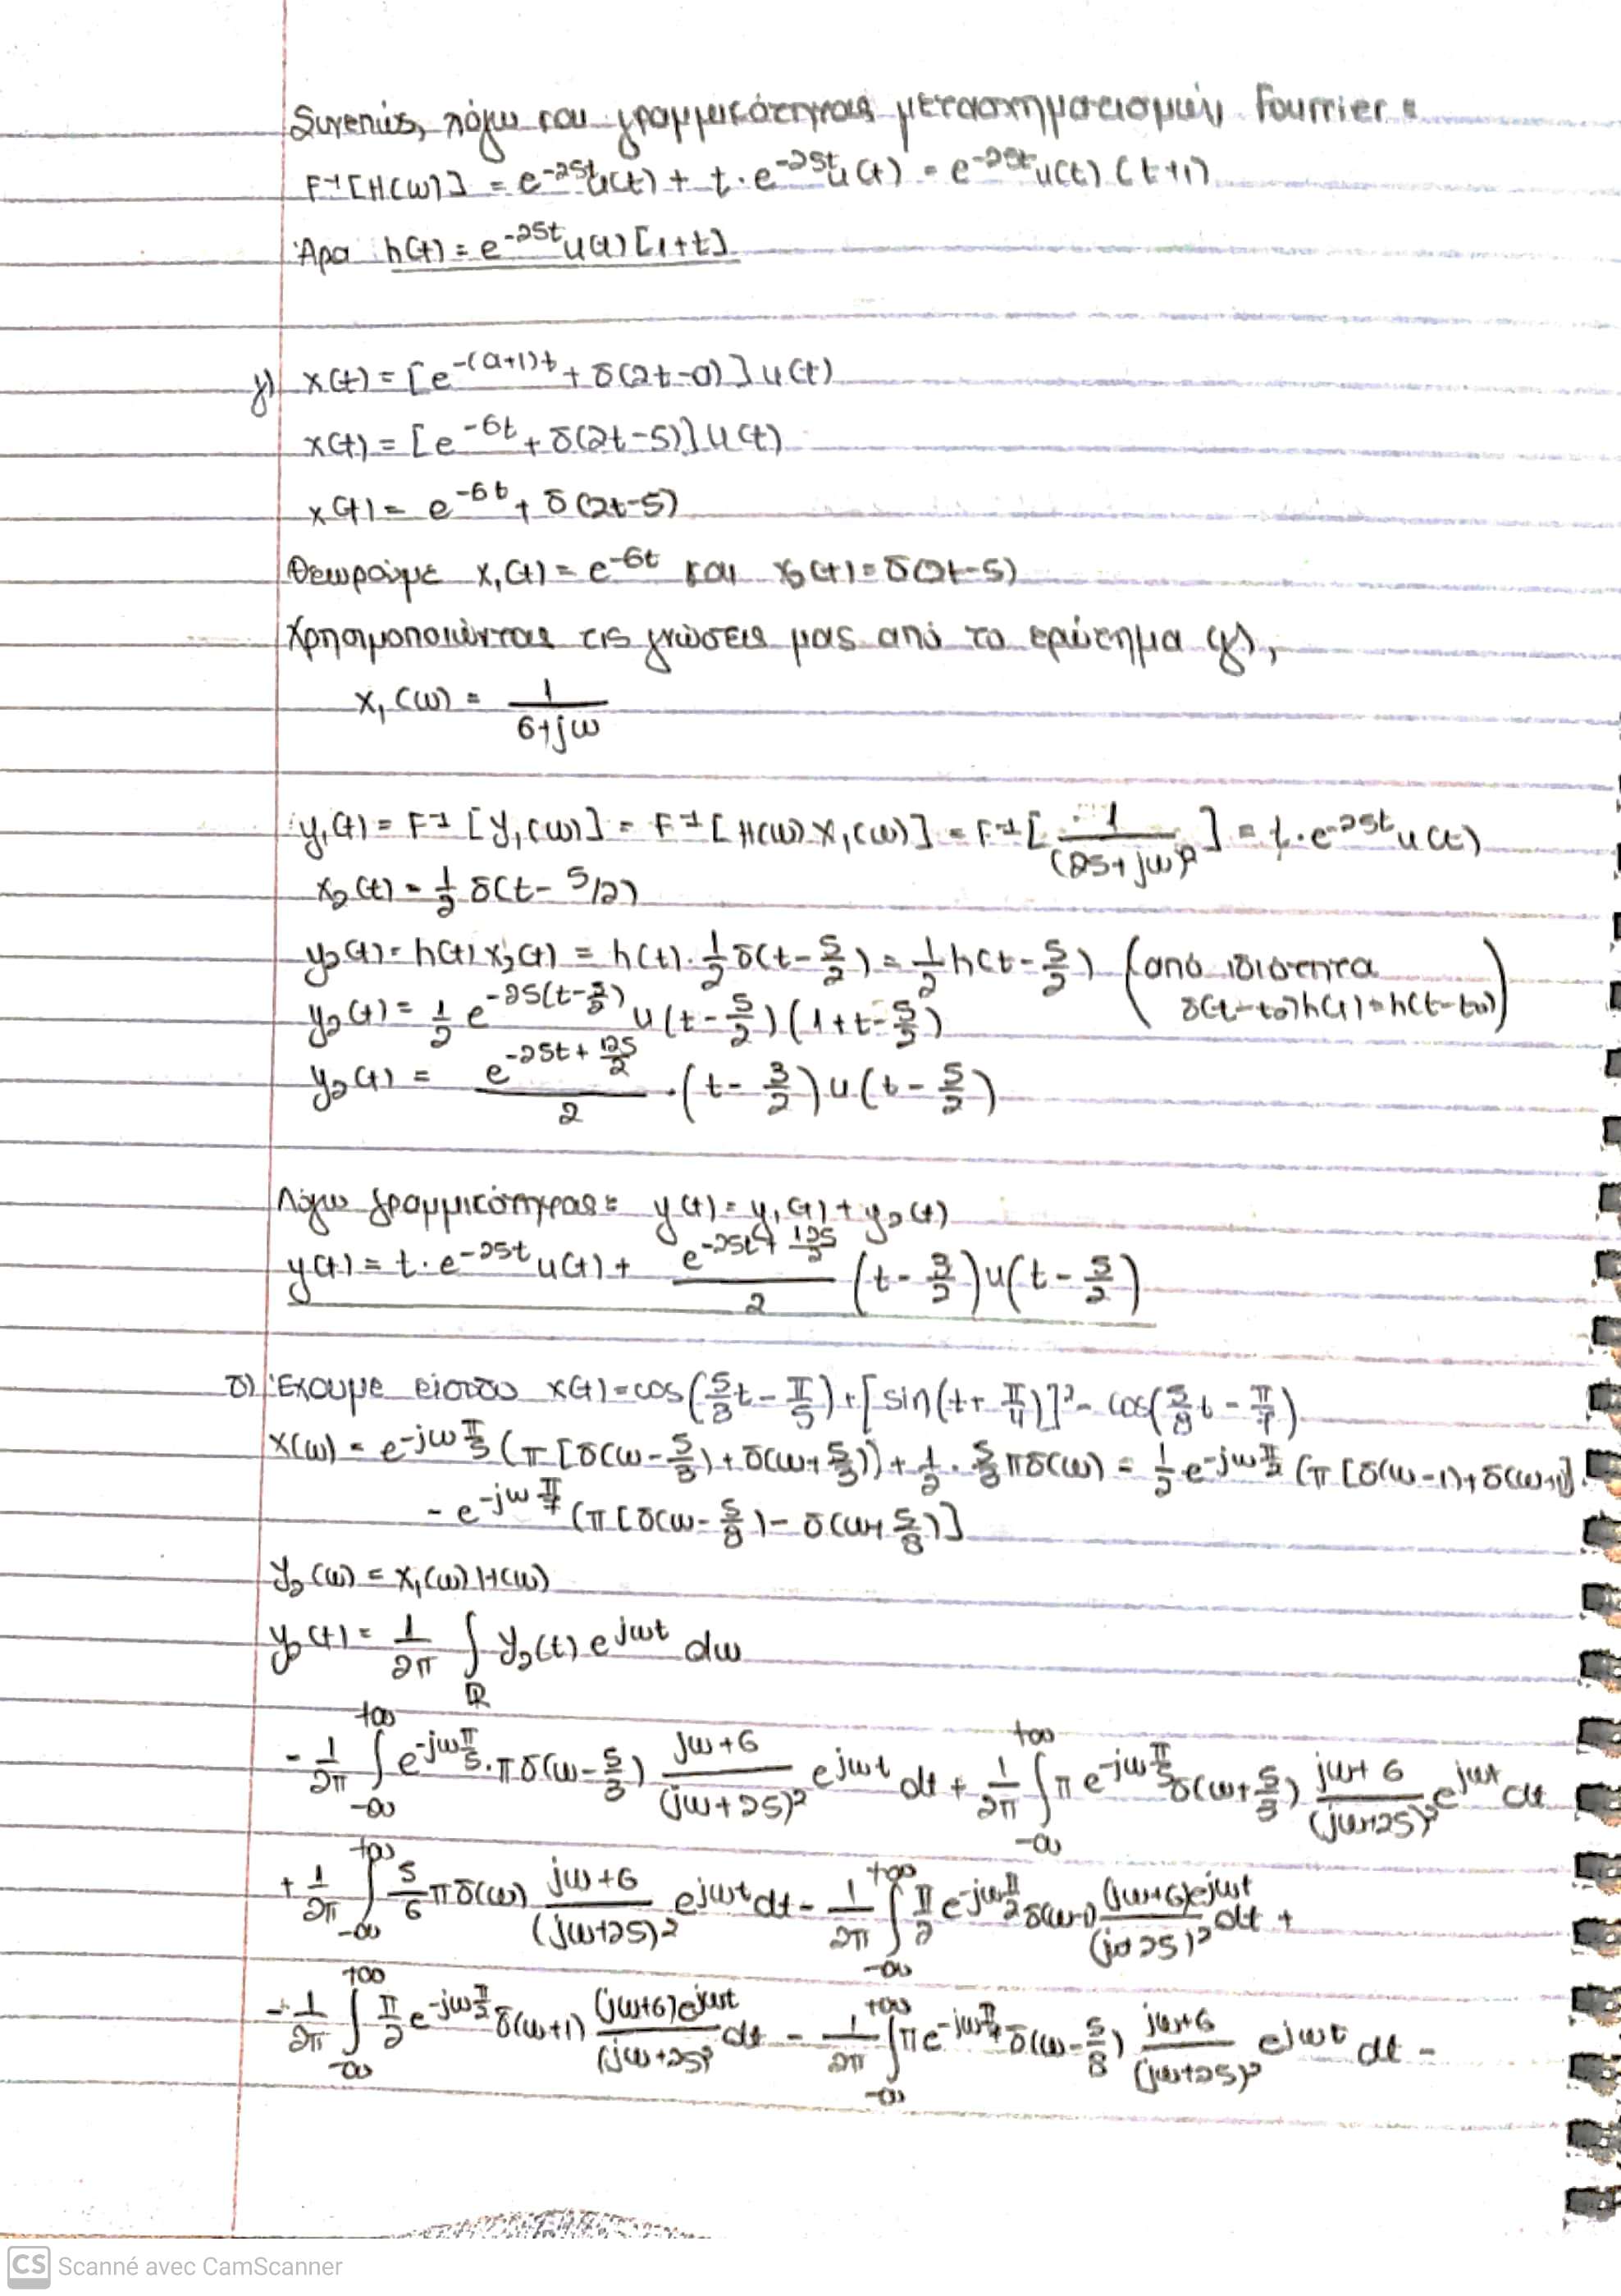 Συνεπώς, λόγω του γραμμικότητας μετασχηματισμών Fourrier:
F⁻¹[H(ω)] = e^-25t u(t) + t·e^-25t u(t) = e^-25t u(t) (t+1)
Άρα h(t) = e^-25t u(t) [1+t]
γ) x(t) = [e^-(a+1)t + δ(2t-a)] u(t)
x(t) = [e^-6t + δ(2t-5)] u(t)
x(t) = e^-6t + δ(2t-5)
Θεωρούμε x₁(t) = e^-6t και x₂(t) = δ(2t-5)
Χρησιμοποιώντας τις γνώσεις μας από το ερώτημα γ),
x₁(ω) = 1/(6+jω)
y₁(t) = F⁻¹[Y₁(ω)] = F⁻¹[H(ω)X₁(ω)] = F⁻¹[1/(25+jω)²] = t·e^-25t u(t)
x₂(t) = 1/2 δ(t - 5/2)
y₂(t) = h(t) x₂(t) = h(t)·1/2 δ(t-5/2) = 1/2 h(t-5/2) (από ιδιότητα
δ(t-t₀)h(t) = h(t-t₀))
y₂(t) = 1/2 e^-25(t-5/2) u(t-5/2)(1+t-5/2)
y₂(t) = e^(-25t+125/2)/2 · (t-3/2) u(t-5/2)
Λόγω γραμμικότητας: y(t) = y₁(t) + y₂(t)
y(t) = t·e^-25t u(t) + e^(-25t+125/2)/2 (t-3/2) u(t-5/2)
δ) Έχουμε είσοδο x(t) = cos(5/3 t - π/5) + [sin(t+π/4)]² - cos(5/8 t - π/7)
X(ω) = e^-jωπ/5 (π[δ(ω-5/3)+δ(ω+5/3)]) + 1/2 · 5/3 πδ(ω) = 1/2 e^-jωπ/2 (π[δ(ω-1)+δ(ω+1)]
- e^-jωπ/7 (π[δ(ω-5/8) - δ(ω+5/8)]
Y₂(ω) = X₁(ω) H(ω)
y₂(t) = 1/2π ∫_R Y₂(t) e^jωt dω
- 1/2π ∫_-∞^+∞ e^-jωπ/5 · πδ(ω-5/3) (jω+6)/(jω+25)² e^jωt dt + 1/2π ∫_-∞^+∞ π e^-jωπ/5 δ(ω+5/3) (jω+6)/(jω+25)² e^jωt dt
+ 1/2π ∫_-∞^+∞ 5/6 πδ(ω) (jω+6)/(jω+25)² e^jωt dt - 1/2π ∫_-∞^+∞ π/2 e^-jωπ/2 δ(ω-1) (jω+6)e^jωt/(jω+25)² dt +
- 1/2π ∫_-∞^+∞ π/2 e^-jωπ/2 δ(ω+1) (jω+6)e^jωt/(jω+25)² dt - 1/2π ∫_-∞^+∞ π e^-jωπ/7 δ(ω-5/8) (jω+6)/(jω+25)² e^jωt dt -
CS Scanné avec CamScanner